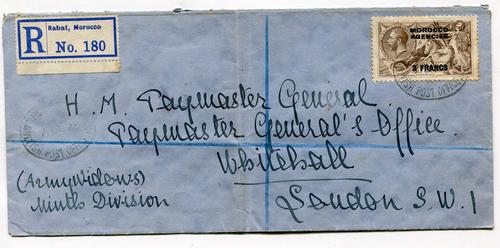 Rabat, Morocco
R No. 180
MOROCCO
AGENCIES
3 FRANCS
POST OFFICE
H. M. Paymaster General
Paymaster General's Office.
Whitehall
London S.W.1
(Army Widows)
Ninth Division